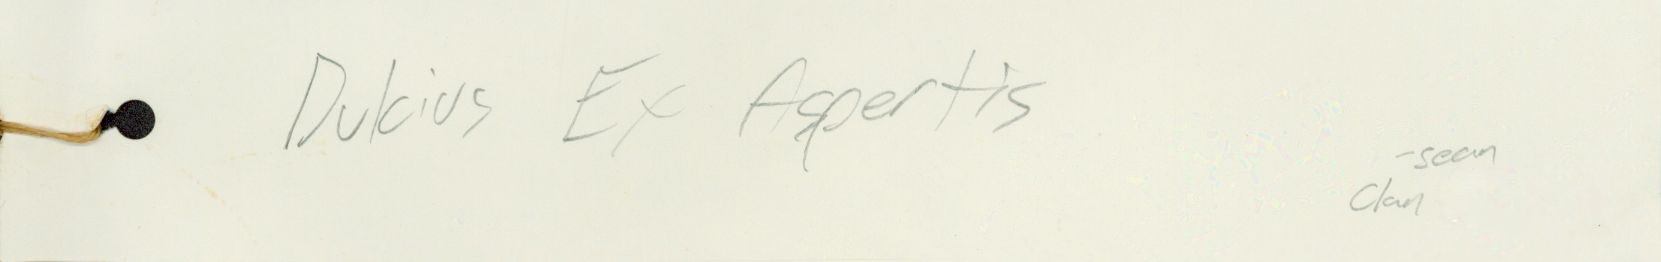 Dulcius Ex Aspertis
-sean
Clan